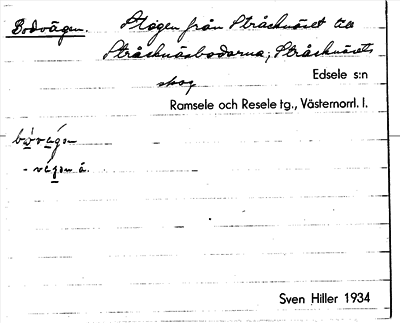 Bodvägen. Stigen från Stråsknäset till
Stråsknäsbodarna; Stråsknäsets
skog
Edsele s:n
Ramsele och Resele tg., Västernorrl. l.
- vägen á.
Sven Hiller 1934